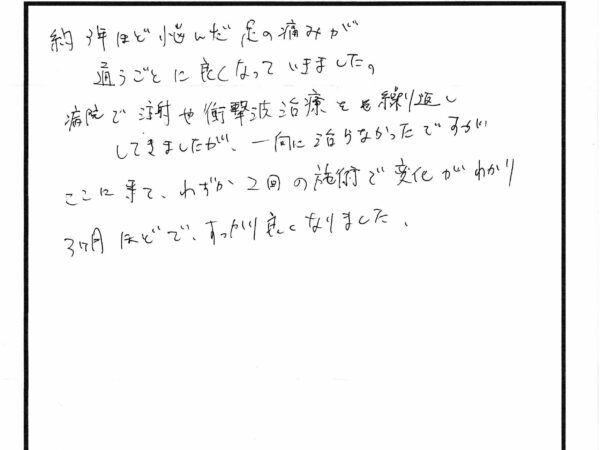 約3年ほど悩んだ足の痛みが
通うごとに良くなっていきました。
病院で注射や衝撃波治療を繰り返し
してきましたが、一向に治らなかったですが
ここに来て、わずか2回の施術で変化がわかり
3ヶ月ほどで、すっかり良くなりました.